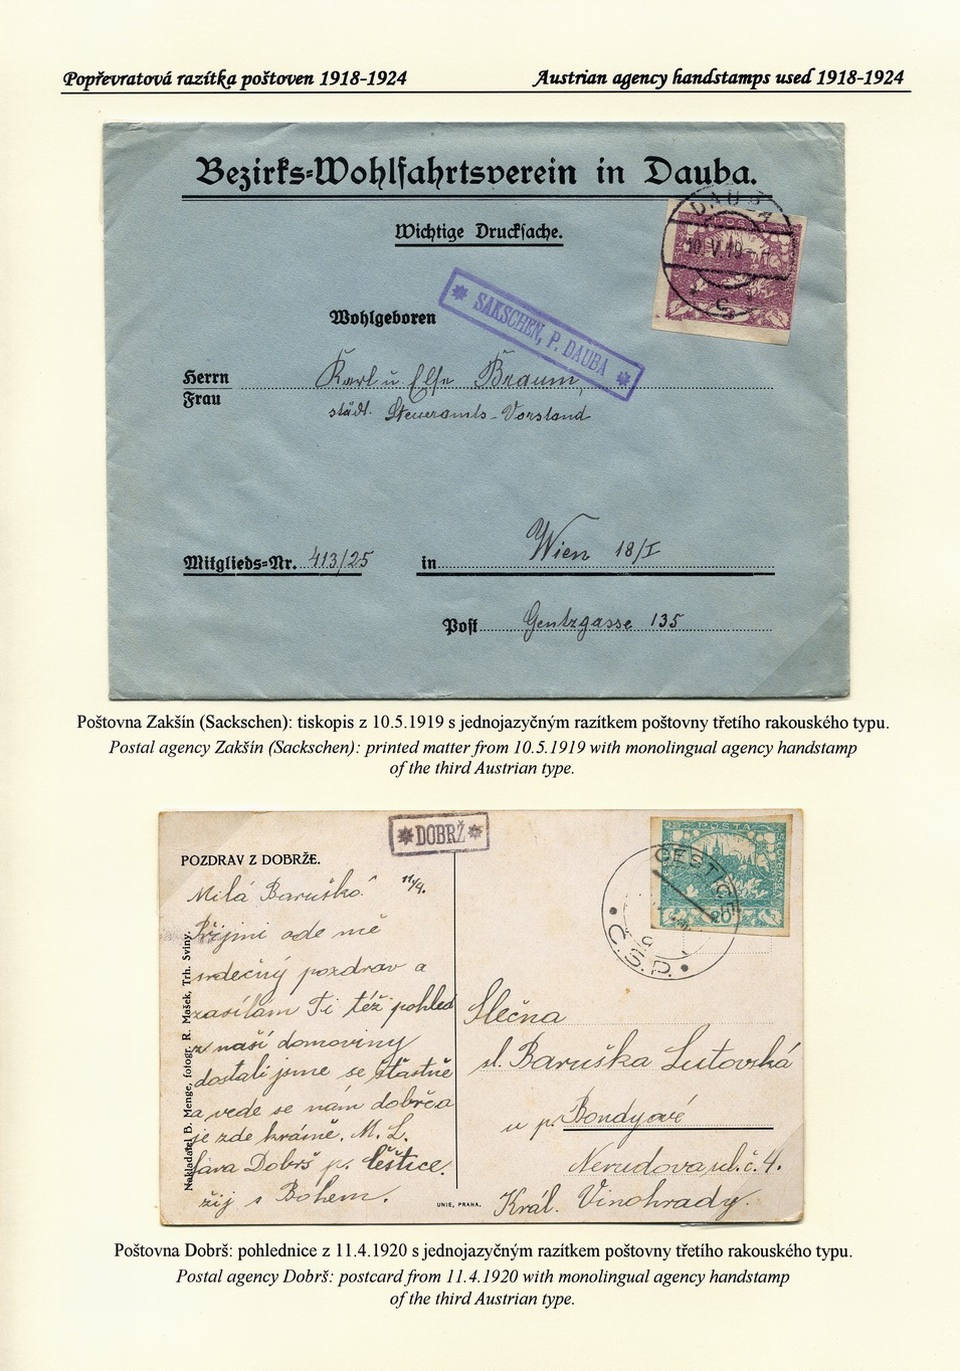 Popřevratová razítka poštoven 1918-1924
Austrian agency handstamps used 1918-1924
Bezirks-Wohlfahrtsverein in Dauba.
Wichtige Drucksache.
DAUBA
10.V.19
POŠTA
* SAKSCHEN, P. DAUBA *
Wohlgeboren
Herrn
Frau
Karl u. Else Braum,
städt. Steueramts-Vorstand
Mitglieds-Nr. 413/25
in Wien 18/I
Post Gentzgasse 135
Poštovna Zakšín (Sackschen): tiskopis z 10.5.1919 s jednojazyčným razítkem poštovny třetího rakouského typu.
Postal agency Zakšín (Sackschen): printed matter from 10.5.1919 with monolingual agency handstamp
of the third Austrian type.
*DOBRŽ*
POŠTA
ČESTICE
Č.S.P.
POZDRAV Z DOBRŽE.
11/4.
Milá Baruško!
Přijmi ode mě
srdečný pozdrav a
zasílám Ti též pohled
z naší domoviny
dostali jsme se šťastně
a vede se nám dobře a
je zde krásně. M. L.
Dobrš p. Čěštice.
žij s Bohem.
Nakladatel B. Menge, fotogr. R. Mašek, Trh. Sviny.
UNIE, PRAHA.
Slečna
sl. Baruška Lutovská
u p. Bondyové
Nerudova ul. č. 4.
Král. Vinohrady.
Poštovna Dobrš: pohlednice z 11.4.1920 s jednojazyčným razítkem poštovny třetího rakouského typu.
Postal agency Dobrš: postcard from 11.4.1920 with monolingual agency handstamp
of the third Austrian type.